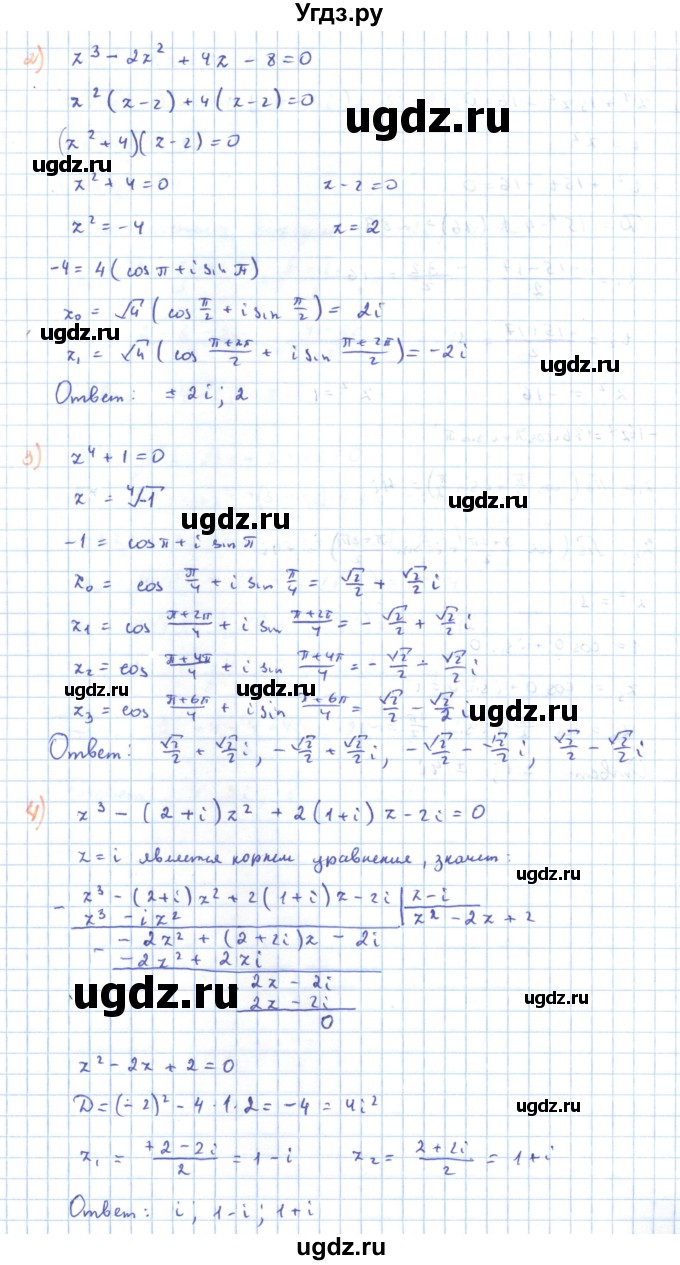 Угдз.ру
2) z³ - 2z² + 4z - 8 = 0
z²(z-2) + 4(z-2) = 0
ugdz.ru
(z² + 4)(z - 2) = 0
ugdz.ru
z² + 4 = 0 z - 2 = 0
z² = -4 z = 2
-4 = 4(cos π + i sin π)
z₀ = √4 (cos π/2 + i sin π/2) = 2i
ugdz.ru
z₁ = √4 (cos (π+2π)/2 + i sin (π+2π)/2) = -2i
ugdz.ru
Ответ: ± 2i; 2
3) z⁴ + 1 = 0
z = ⁴√-1
ugdz.ru
ugdz.ru
-1 = cos π + i sin π
z₀ = cos π/4 + i sin π/4 = √2/2 + √2/2 i
z₁ = cos (π+2π)/4 + i sin (π+2π)/4 = - √2/2 + √2/2 i
z₂ = cos (π+4π)/4 + i sin (π+4π)/4 = - √2/2 - √2/2 i
ugdz.ru ugdz.ru
z₃ = cos (π+6π)/4 + i sin (π+6π)/4 = √2/2 - √2/2 i
ugdz.ru
Ответ: √2/2 + √2/2 i, - √2/2 + √2/2 i, - √2/2 - √2/2 i, √2/2 - √2/2 i
4) z³ - (2+i)z² + 2(1+i)z - 2i = 0
z = i является корнем уравнения, значит:
ugdz.ru
- z³ - (2+i)z² + 2(1+i)z - 2i | z - i
z³ - iz² z² - 2z + 2
- - 2z² + (2+2i)z - 2i
- 2z² + 2zi
2z - 2i
ugdz.ru ugdz.ru
2z - 2i
0
z² - 2z + 2 = 0
D = (-2)² - 4·1·2 = -4 = 4i²
ugdz.ru
z₁ = (+2-2i)/2 = 1 - i z₂ = (2+2i)/2 = 1+i
Ответ: i; 1-i; 1+i
ugdz.ru
ugdz.ru